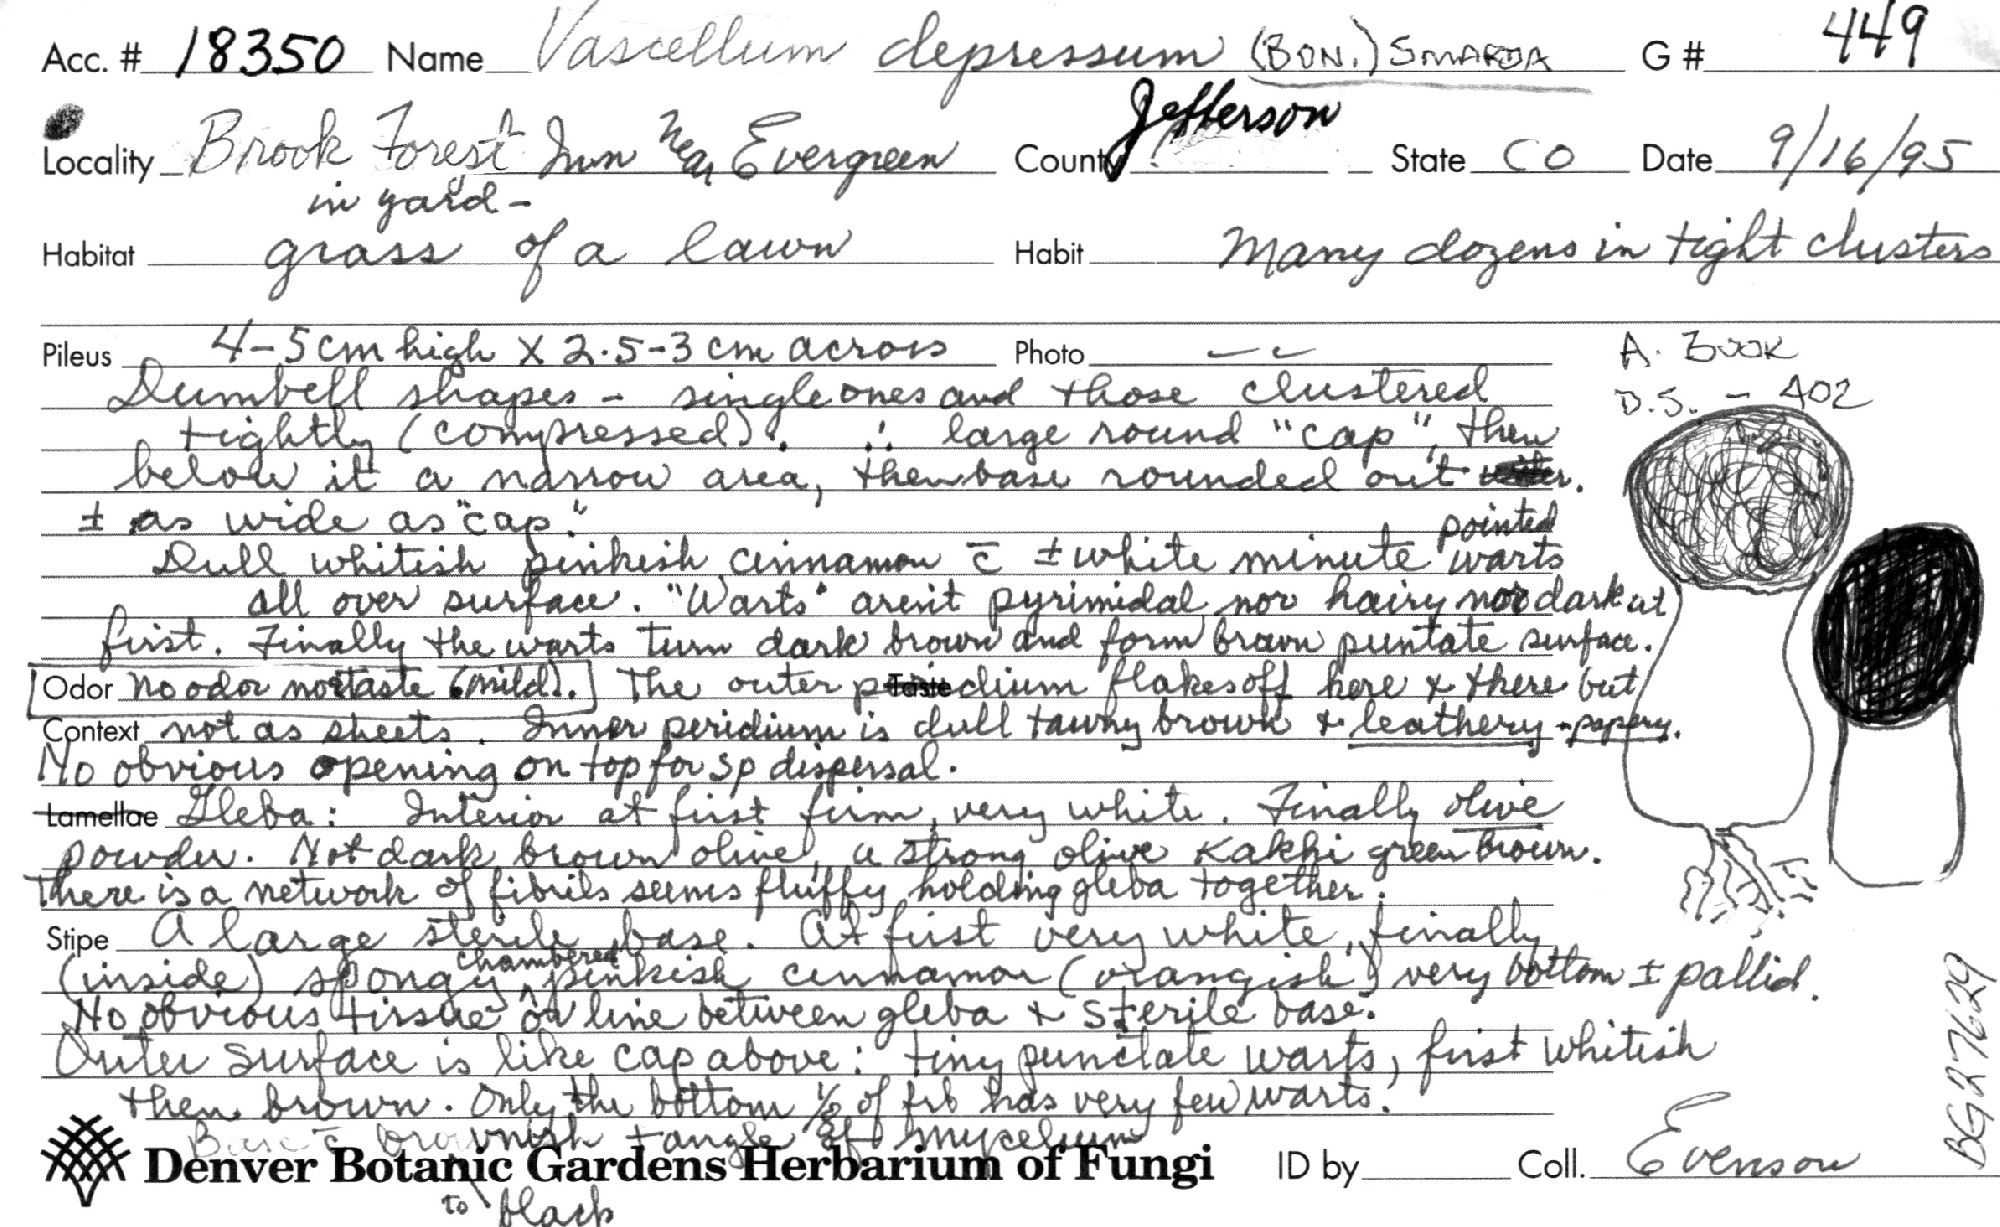 Acc. # 18350 Name Vascellum depressum (BON.) SMARDA G # 449
Locality Brook Forest Inn near Evergreen County Jefferson State CO Date 9/16/95
in yard -
Habitat grass of a lawn Habit Many dozens in tight clusters
Pileus 4-5 cm high X 2.5-3 cm across Photo
A. BOOK
D.S. - 402
Dumbell shapes - single ones and those clustered
tightly (compressed). ∴ large round "cap", then
below it a narrow area, then base rounded out
± as wide as "cap."
Dull whitish pinkish cinnamon c̄ ± white minute pointed warts
all over surface. "Warts" aren't pyrimidal nor hairy nor dark at
first. Finally the warts turn dark brown and form brown puntate surface.
Odor No odor nor taste (mild). The outer peridium flakes off here & there but
Context not as sheets. Inner peridium is dull tawny brown & leathery - papery.
No obvious opening on top for sp dispersal.
Lamellae Gleba: Interior at first firm, very white. Finally olive
powder. Not dark brown olive, a strong olive Kakhi green brown.
There is a network of fibrils seems fluffy holding gleba together.
Stipe A large sterile base. At first very white, finally
(inside) spongy, chambered pinkish cinnamon (orangish) very bottom ± pallid.
No obvious tissue or line between gleba & sterile base.
Outer surface is like cap above: tiny punctate warts, first whitish
then brown. Only the bottom 1/2 of frb has very few warts.
Base c̄ brownish tangle of mycelium
to black
Denver Botanic Gardens Herbarium of Fungi ID by Coll. Evenson
BG27629